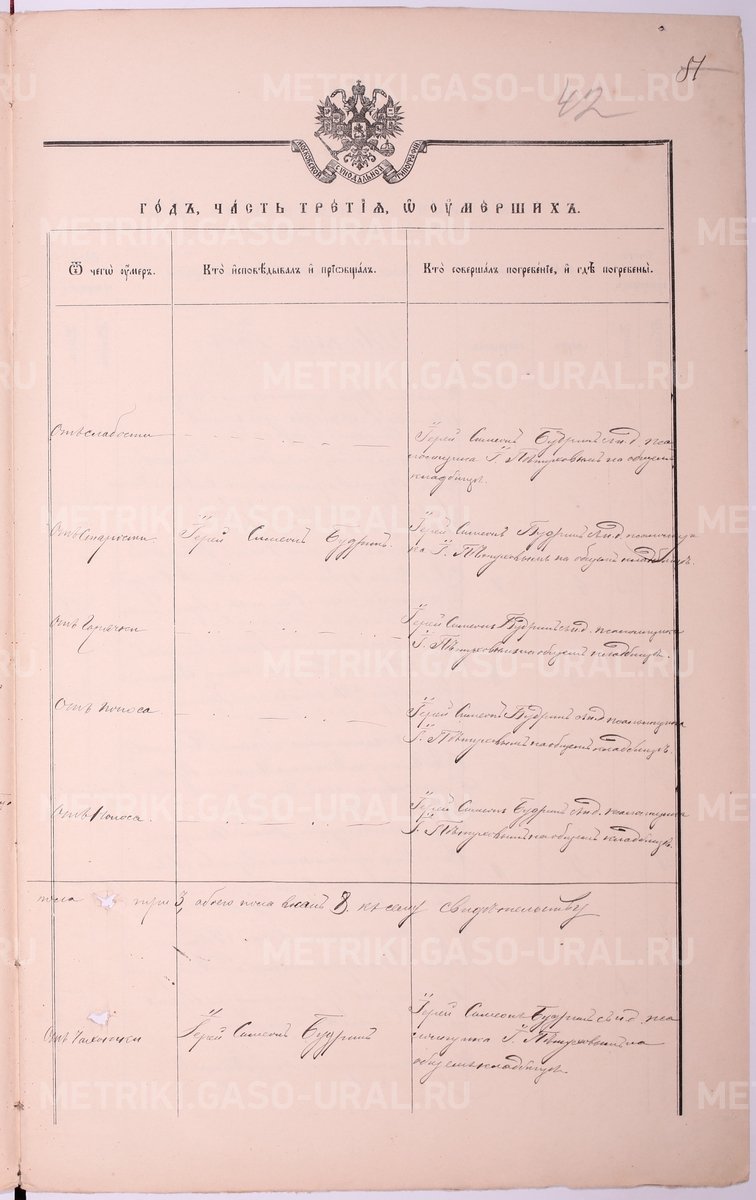 81
42
МОСКОВСКОЙ СѴНОДАЛЬНОЙ ТИПОГРАФІИ
ГОДЪ, ЧАСТЬ ТРЕТІѦ, Ѡ ОУМЕРШИХЪ.
Ѿ чегѡ оумеръ.
Кто исповѣдывалъ и прїѡбщалъ.
Кто совершалъ погребенїе, и гдѣ погребены.
Отъ слабости
Іерей Симеонъ Будринъ съ и.д. пса
ломщика І. Пѣтуховымъ на общемъ
кладбищѣ.
Отъ Старости
Іерей Симеонъ Будринъ.
Іерей Симеонъ Будринъ съ и.д. псаломщи
ка І. Пѣтуховымъ на общемъ кладбищѣ.
Отъ Горячки
Іерей Симеонъ Будринъ съ и.д. псаломщика
І. Пѣтуховымъ на общемъ кладбищѣ.
Отъ поноса
Іерей Симеонъ Будринъ съ и.д. псаломщика
І. Пѣтуховымъ на общемъ кладбищѣ
Отъ Поноса.
Іерей Симеонъ Будринъ съ и.д. псаломщика
І. Пѣтуховымъ на общемъ кладбищѣ.
пола три 3, обоего пола 8. къ сему свидѣтельству
Отъ Чахоточки
Іерей Симеонъ Будринъ
Іерей Симеонъ Будринъ съ и.д. пса
ломщика І. Пѣтуховымъ на
общемъ кладбищѣ.
METRIKI.GASO-URAL.RU